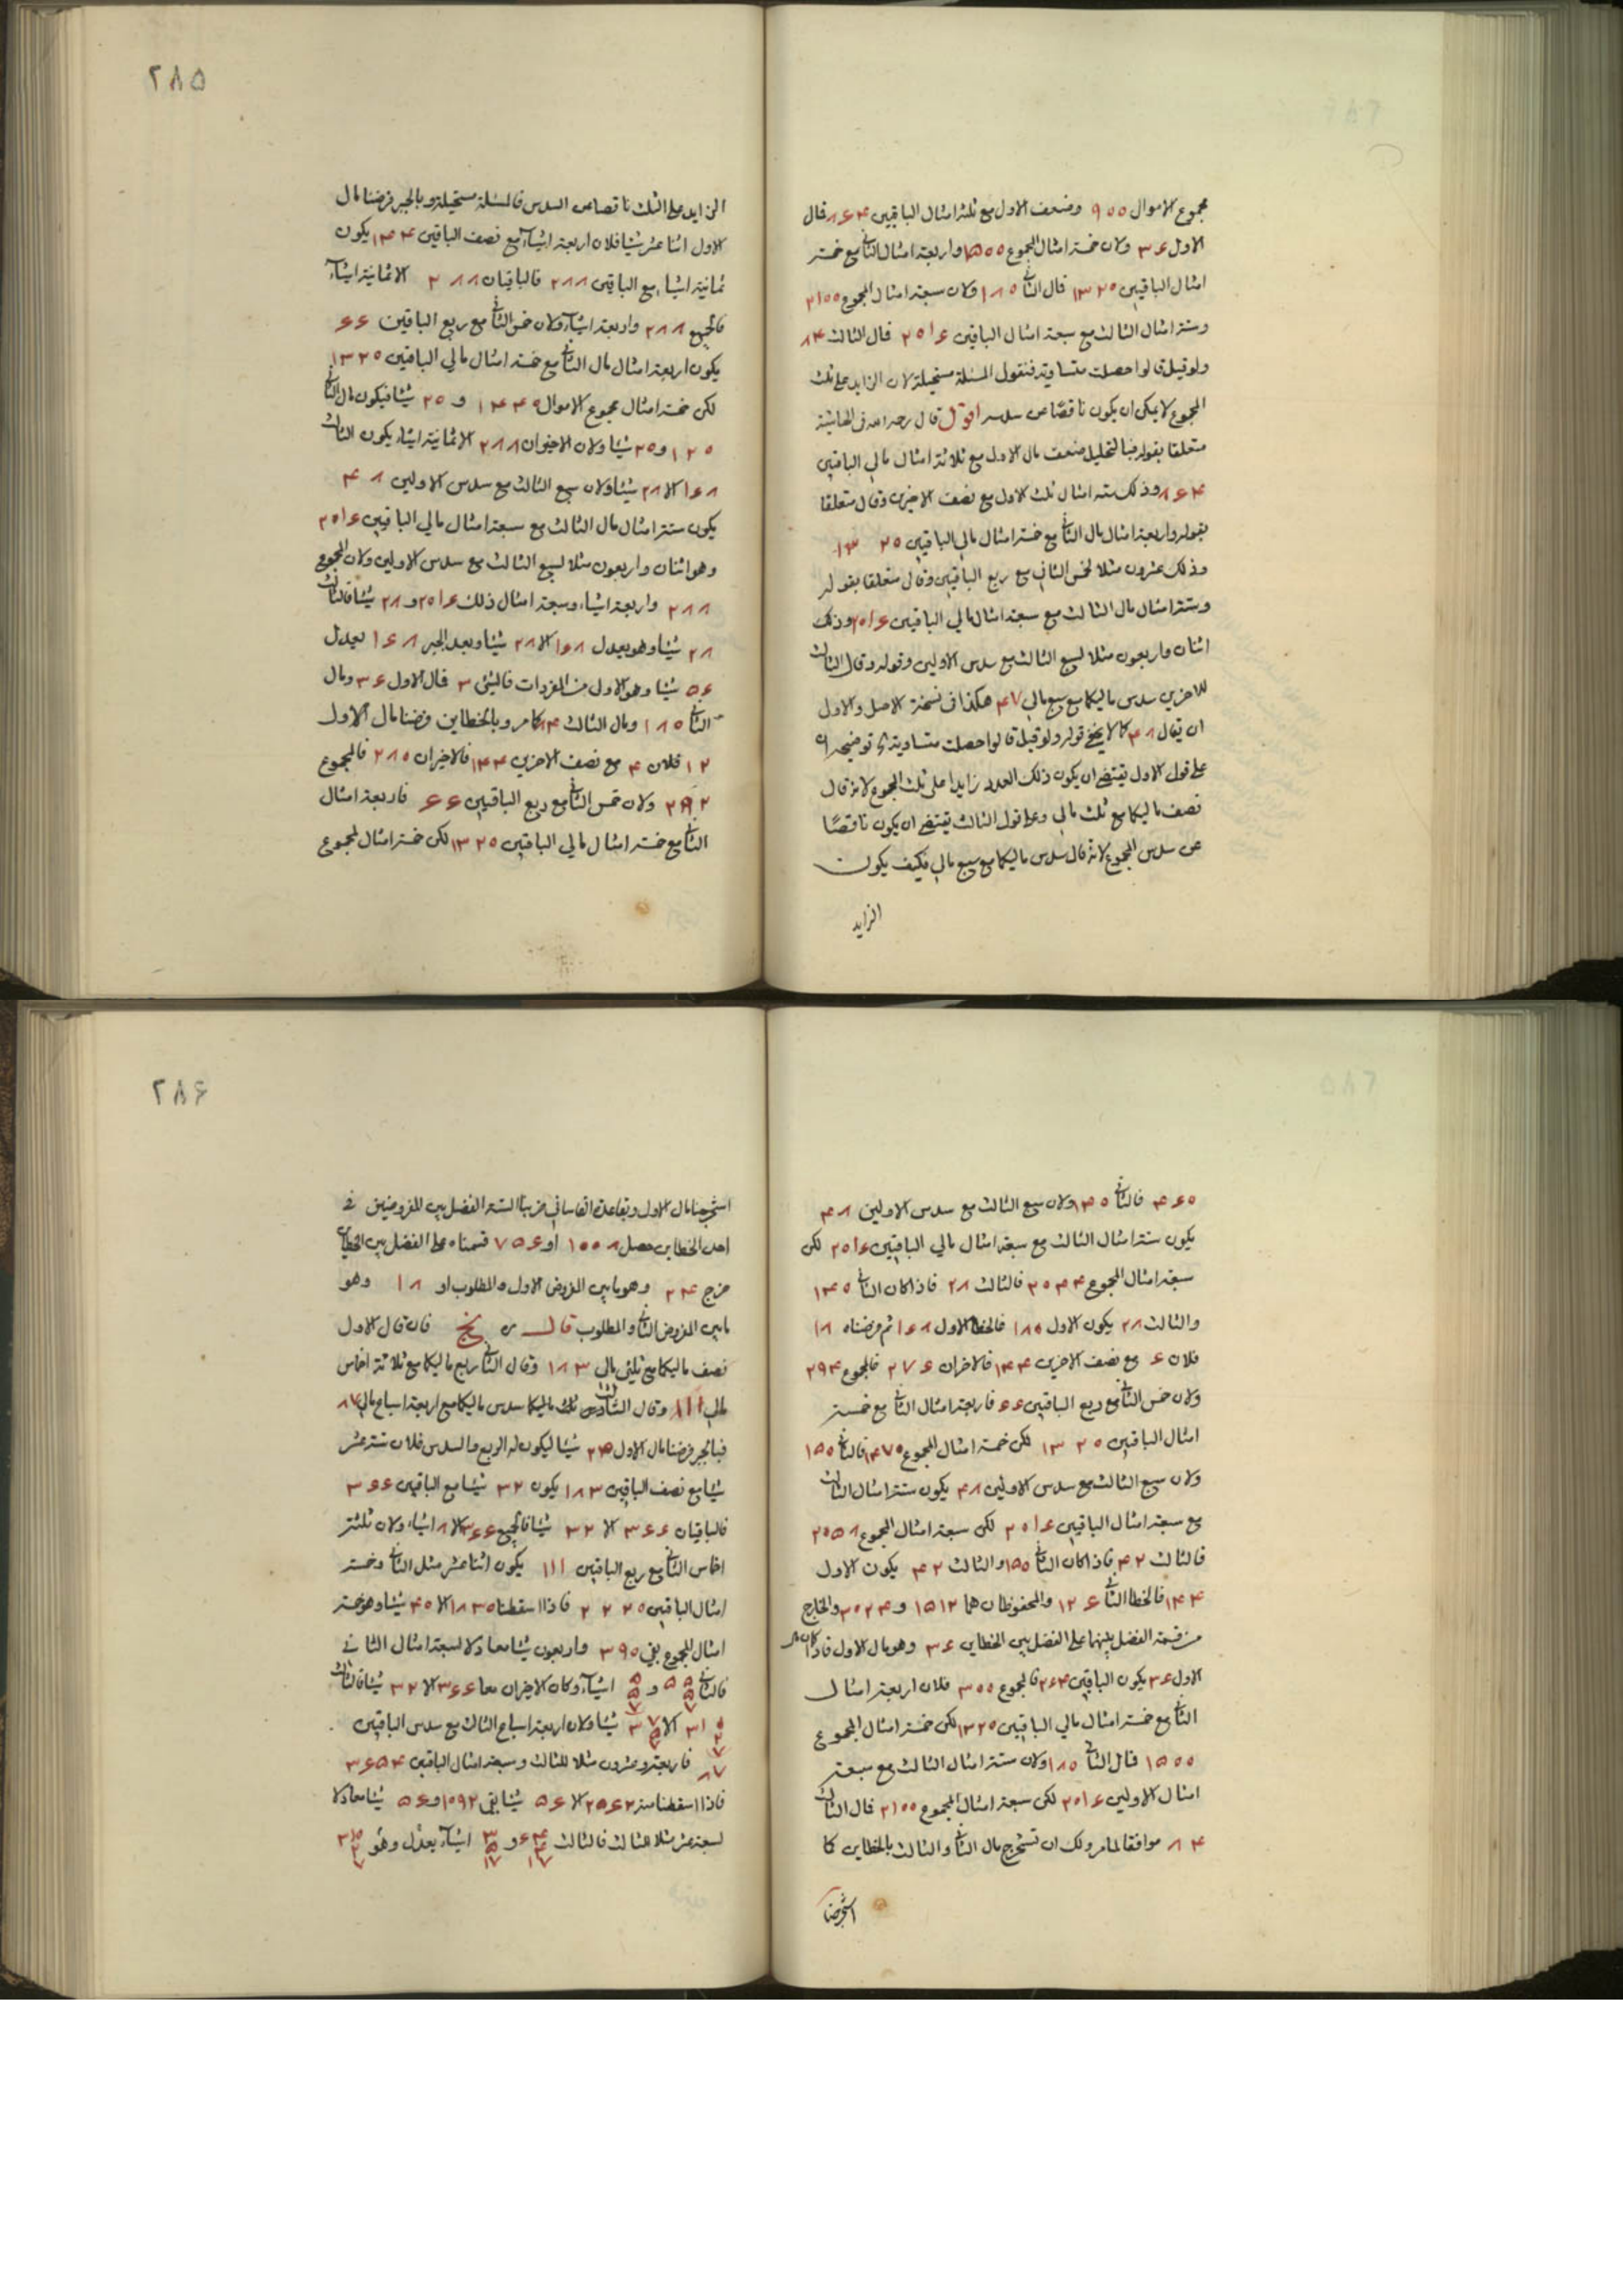 مجموع الاموال ٩٠٠ وضعف الاول مع ثلثة امثال الباقيين ٨٦٤ فمال
الاول ٣٦ ولان خمسة امثال المجموع ١٥٠٠ واربعة امثال الثاني مع خمسة
امثال الباقيين ١٣٢٠ فمال الثاني ١٨٠ ولان سبعة امثال المجموع ٢١٠٠
وستة امثال الثالث مع سبعة امثال الباقيين ٢٠١٦ فمال الثالث ٨٤
ولو قيل قالوا حصلت متساوية فنقول المسئلة مستحيلة لان الزايد على ثلث
المجموع لا يمكن ان يكون ناقصا عن سدسه اقول قال رحمه الله في الحاشية
متعلقا بقوله فبالتحليل ضعف مال الاول مع ثلاثة امثال مالي الباقيين
٨٦٤ وذلك ستة امثال ثلث الاول مع نصف الاخيرين وقال متعلقا
بقوله واربعة امثال مال الثاني مع خمسة امثال مالي الباقيين ١٣٢٠
وذلك عشرون مثلا لخمس الثاني مع ربع الباقيين وقال متعلقا بقوله
وستة امثال مال الثالث مع سبعة امثال مالي الباقيين ٢٠١٦ وذلك
اثنان واربعون مثلا لسبع الثالث مع سدس الاولين وقوله وقال الثالث
للاخرين سدس ماليكما مع سبع مالي ٤٧ هكذا في نسخة الاصل والاولى
ان يقال ٤٨ كما لا يخفى قوله ولو قيل قالوا حصلت متساوية توضيحه ان
على قول الاول يقتضي ان يكون ذلك العدد زايدا على ثلث المجموع لانه قال
نصف ماليكما مع ثلث مالي وعلى قول الثالث يقتضي ان يكون ناقصا
عن سدس المجموع لانه قال سدس ماليكما مع سبع مالي فكيف يكون
الزايد
٢٨٥
الزايد على الثلث ناقصا من السدس فالمسئلة مستحيلة وبالجبر فرضنا مال
الاول اثنا عشر شيئا فلان اربعة اشياء مع نصف الباقيين ١٤٤ يكون
ثمانية اشياء مع الباقيين ٢٨٨ فالباقيان ٢٨٨ الا ثمانية اشياء
فالجميع ٢٨٨ واربعة اشياء ولان خمس الثاني مع ربع الباقيين ٦٦
يكون اربعة امثال مال الثاني مع خمسة امثال مالي الباقيين ١٣٢٠
لكن خمسة امثال مجموع الاموال ١٤٤٠ و ٢٠ شيئا فيكون مال الثاني
١٢٠ و ٢٠ شيئا ولان الاخيران ٢٨٨ الا ثمانية اشياء يكون الثالث
١٦٨ الا ٢٨ شيئا ولان سبع الثالث مع سدس الاولين ٤٨
يكون ستة امثال مال الثالث مع سبعة امثال مالي الباقيين ٢٠١٦
وهو اثنان واربعون مثلا لسبع الثالث مع سدس الاولين ولان المجموع
٢٨٨ واربعة اشياء وسبعة امثال ذلك ٢٠١٦ و ٢٨ شيئا فالثالث
٢٨ شيئا وهو يعدل ١٦٨ الا ٢٨ شيئا وبعد الجبر ١٦٨ يعدل
٥٦ شيئا وهو الاول من المفردات فالشئ ٣ فمال الاول ٣٦ ومال
الثاني ١٨٠ ومال الثالث ٨٤ كما مر وبالخطاين فرضنا مال الاول
١٢ فلان ٤ مع نصف الاخرين ١٤٤ فالاخيران ٢٨٠ فالمجموع
٢٩٢ ولان خمس الثاني مع ربع الباقيين ٦٦ فاربعة امثال
الثاني مع خمسة امثال مالي الباقيين ١٣٢٠ لكن خمسة امثال المجموع
١٤٦٠ فالثاني ١٤٠ ولان سبع الثالث مع سدس الاولين ٤٨
يكون ستة امثال الثالث مع سبعة امثال مالي الباقيين ٢٠١٦ لكن
سبعة امثال المجموع ٢٠٤٤ فالثالث ٢٨ فاذا كان الثاني ١٤٠
والثالث ٢٨ يكون الاول ١٨٠ فالخطا الاول ١٦٨ ثم فرضناه ١٨
فلان ٦ مع نصف الاخرين ١٤٤ فالاخران ٢٧٦ فالمجموع ٢٩٤
ولان خمس الثاني مع ربع الباقيين ٦٦ فاربعة امثال الثاني مع خمسة
امثال الباقيين ١٣٢٠ لكن خمسة امثال المجموع ١٤٧٠ فالثاني ١٥٠
ولان سبع الثالث مع سدس الاولين ٤٨ يكون ستة امثال الثالث
مع سبعة امثال الباقيين ٢٠١٦ لكن سبعة امثال المجموع ٢٠٥٨
فالثالث ٤٢ فاذا كان الثاني ١٥٠ والثالث ٤٢ يكون الاول
١٤٤ فالخطا الثاني ١٢٦ والمحفوظان هما ١٥١٢ و ٣٠٢٤ والخارج
من قسمة الفضل بينهما على الفضل بين الخطاين ٣٦ وهو مال الاول فاذا كان
الاول ٣٦ يكون الباقيين ٢٦٤ فالمجموع ٣٠٠ فلان اربعة امثال
الثاني مع خمسة امثال مالي الباقيين ١٣٢٠ لكن خمسة امثال المجموع
١٥٠٠ فمال الثاني ١٨٠ ولان ستة امثال الثالث مع سبعة
امثال الاولين ٢٠١٦ لكن سبعة امثال المجموع ٢١٠٠ فمال الثالث
٨٤ موافقا لما مر ولك ان تستخرج مال الثاني والثالث بالخطاين كما
استخرجنا
٢٨٦
استخرجنا مال الاول وبقاعدة ضربنا الستة الفضل بين المفروضين في
احد الخطاين حصل ١٠٠٨ او ٧٥٦ قسمناه على الفضل بين الخطاين
خرج ٢٤ وهو ما بين المفروض الاول والمطلوب او ١٨ وهو
ما بين المفروض الثاني والمطلوب قال فان قال الاول
نصف ماليكما مع ثلثي مالي ١٨٣ وقال الثاني ربع ماليكما مع ثلاثة اخماس
مالي ١١١ وقال الثالث سدس ماليكما مع اربعة اسباع مالي ٨٧
فبالجبر فرضنا مال الاول ٢٤ شيئا ليكون له الربع والسدس فلان ستة عشر
شيئا مع نصف الباقيين ١٨٣ يكون ٣٢ شيئا مع الباقيين ٣٦٦
فالباقيان ٣٦٦ الا ٣٢ شيئا فالجميع ٣٦٦ الا ٨ اشياء ولان ثلثة
اخماس الثاني مع ربع الباقيين ١١١ يكون اثنا عشر مثل الثاني وخمسة
امثال الباقيين ٢٢٢٠ فاذا اسقطنا ١٨٣٠ الا ٤٠ شيئا وهو خمسة
امثال المجموع بقي ٣٩٠ واربعون شيئا معادلا لسبعة امثال الثاني
فالثاني ٥٥ ٥ ٧ و ٥ ٥ ٧ اشياء وكان الاخيران معا ٣٦٦ الا ٣٢ شيئا فالثالث
٣١٠ ٢ ٧ الا ٣٧ ٥ ٧ شيئا ولان اربعة اسباع الثالث مع سدس الباقيين
٨٧ فاربعة وعشرون مثلا للثالث وسبعة امثال الباقيين ٣٦٥٤
فاذا اسقطنا منه ٢٥٦٢ الا ٥٦ شيئا بقي ١٠٩٢ و ٥٦ شيئا معادلا
لسبعة عشر مثلا للثالث فالثالث ٦٤ ٤ ١٧ و ٣ ٥ ١٧ اشياء يعدل وهو ٣١٠ ٢ ٧